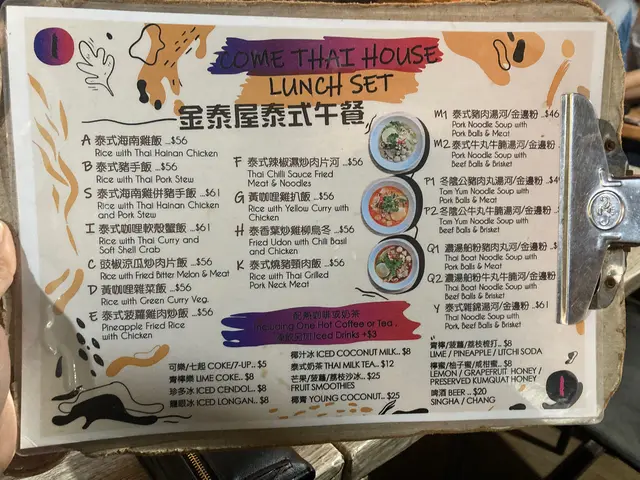 1
COME THAI HOUSE
LUNCH SET
金泰屋泰式午餐
A 泰式海南雞飯 ...$56
Rice with Thai Hainan Chicken
B 泰式豬手飯 ...$56
Rice with Thai Pork Stew
S 泰式海南雞併豬手飯 ...$61
Rice with Thai Hainan Chicken
and Pork Stew
I 泰式咖喱軟殼蟹飯 ...$61
Rice with Thai Curry and
Soft Shell Crab
C 豉椒涼瓜炒肉片飯 ...$56
Rice with Fried Bitter Melon & Meat
D 黃咖喱雜菜飯 ...$56
Rice with Green Curry Veg.
E 泰式菠蘿雞肉炒飯 ...$56
Pineapple Fried Rice
with Chicken
F 泰式辣椒濕炒肉片河 ...$56
Thai Chilli Sauce Fried
Meat & Noodles
G 黃咖喱雞扒飯 ...$56
Rice with Yellow Curry with
Chicken
H 泰香葉炒雞柳烏冬 ...$56
Fried Udon with Chili Basil
and Chicken
K 泰式燒豬頸肉飯 ...$56
Rice with Thai Grilled
Pork Neck Meat
M1 泰式豬肉湯河/金邊粉 ...$46
Pork Noodle Soup with
Pork Balls & Meat
M2 泰式牛丸牛腩湯河/金邊粉
Pork Noodle Soup with
Beef Balls & Brisket
P1 冬陰公豬肉丸湯河/金邊粉
Tom Yun Noodle Soup with
Pork Balls & Meat
P2 冬陰公牛丸牛腩湯河/金邊粉
Tom Yun Noodle Soup with
Beef Balls & Brisket
Q1 濃湯船粉豬肉丸河/金邊粉
Thai Boat Noodle Soup with
Pork Balls & Meat
Q2 濃湯船粉牛丸牛腩河/金邊粉
Thai Boat Noodle Soup with
Beef Balls & Brisket
Y 泰式雜錦湯河/金邊粉 ...$61
Thai Noodle Soup with
Pork Balls & Brisket
配熱咖啡或奶茶
Including One Hot Coffee or Tea .
Iced Drinks +$3
可樂/七起 COKE/7-UP.. $5
青檸樂 LIME COKE.. $8
珍多冰 ICED CENDOL.. $8
龍眼冰 ICED LONGAN.. $8
椰汁冰 ICED COCONUT MILK.. $8
泰式奶茶 THAI MILK TEA.. $12
芒果/菠蘿/荔枝沙冰.. $25
FRUIT SMOOTHIES
椰青 YOUNG COCONUT.. $25
青檸/菠蘿/荔枝梳打.. $8
LIME / PINEAPPLE / LITCHI SODA
檸蜜/柚子蜜/咸柑蜜.. $8
LEMON / GRAPEFRUIT HONEY /
PRESERVED KUMQUAT HONEY
啤酒 BEER ... $20
SINGHA / CHANG
1